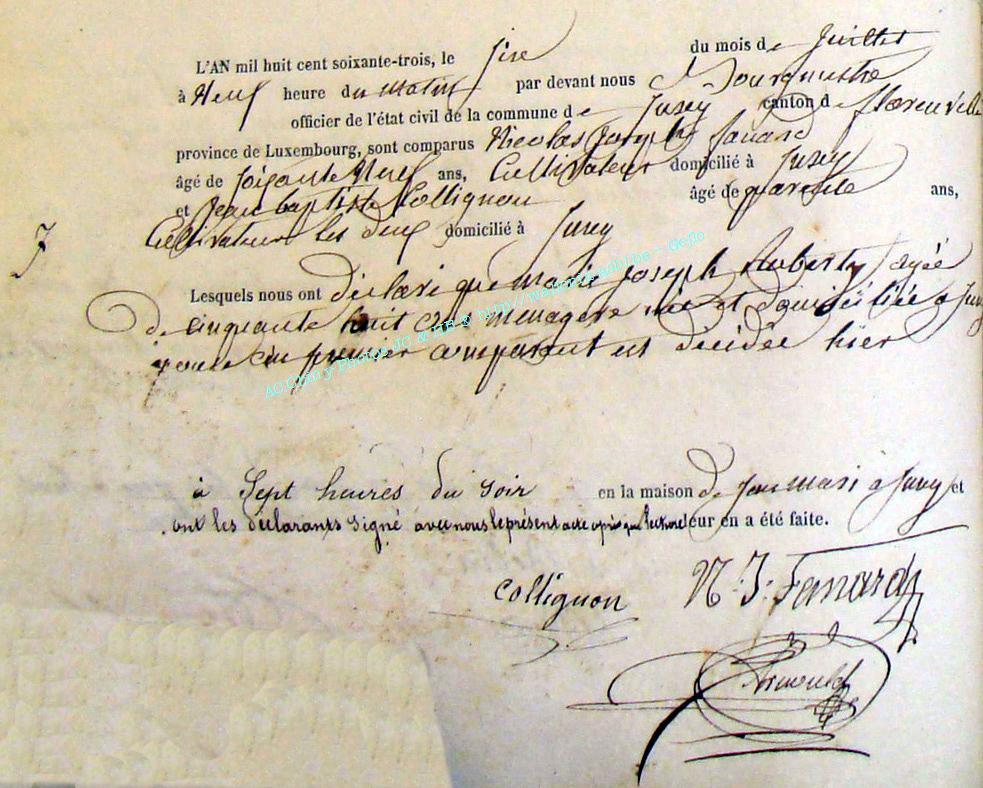 L'AN mil huit cent soixante-trois, le sise du mois de Juillet
à Neuf heure du matin par devant nous Bourgmestre
officier de l'état civil de la commune de Jusey canton d florenville
province de Luxembourg, sont comparus Nicolas Joseph fanard
âgé de soixante Neuf ans, Cultivateur domicilié à Jusey
et Jean baptiste Collignon âgé de quarente ans,
Cultivateur les deux domicilié à Jusey
Lesquels nous ont déclaré que marie joseph huberty agée
de cinquante huit ans menagère née et domiciliée a
premier comparant est décédée hier
à Sept heures du soir en la maison de son mari a et
ont les déclarants signé avec nous le présent acte après que lecture leur en a été faite.
Collignon N: J: Fanard